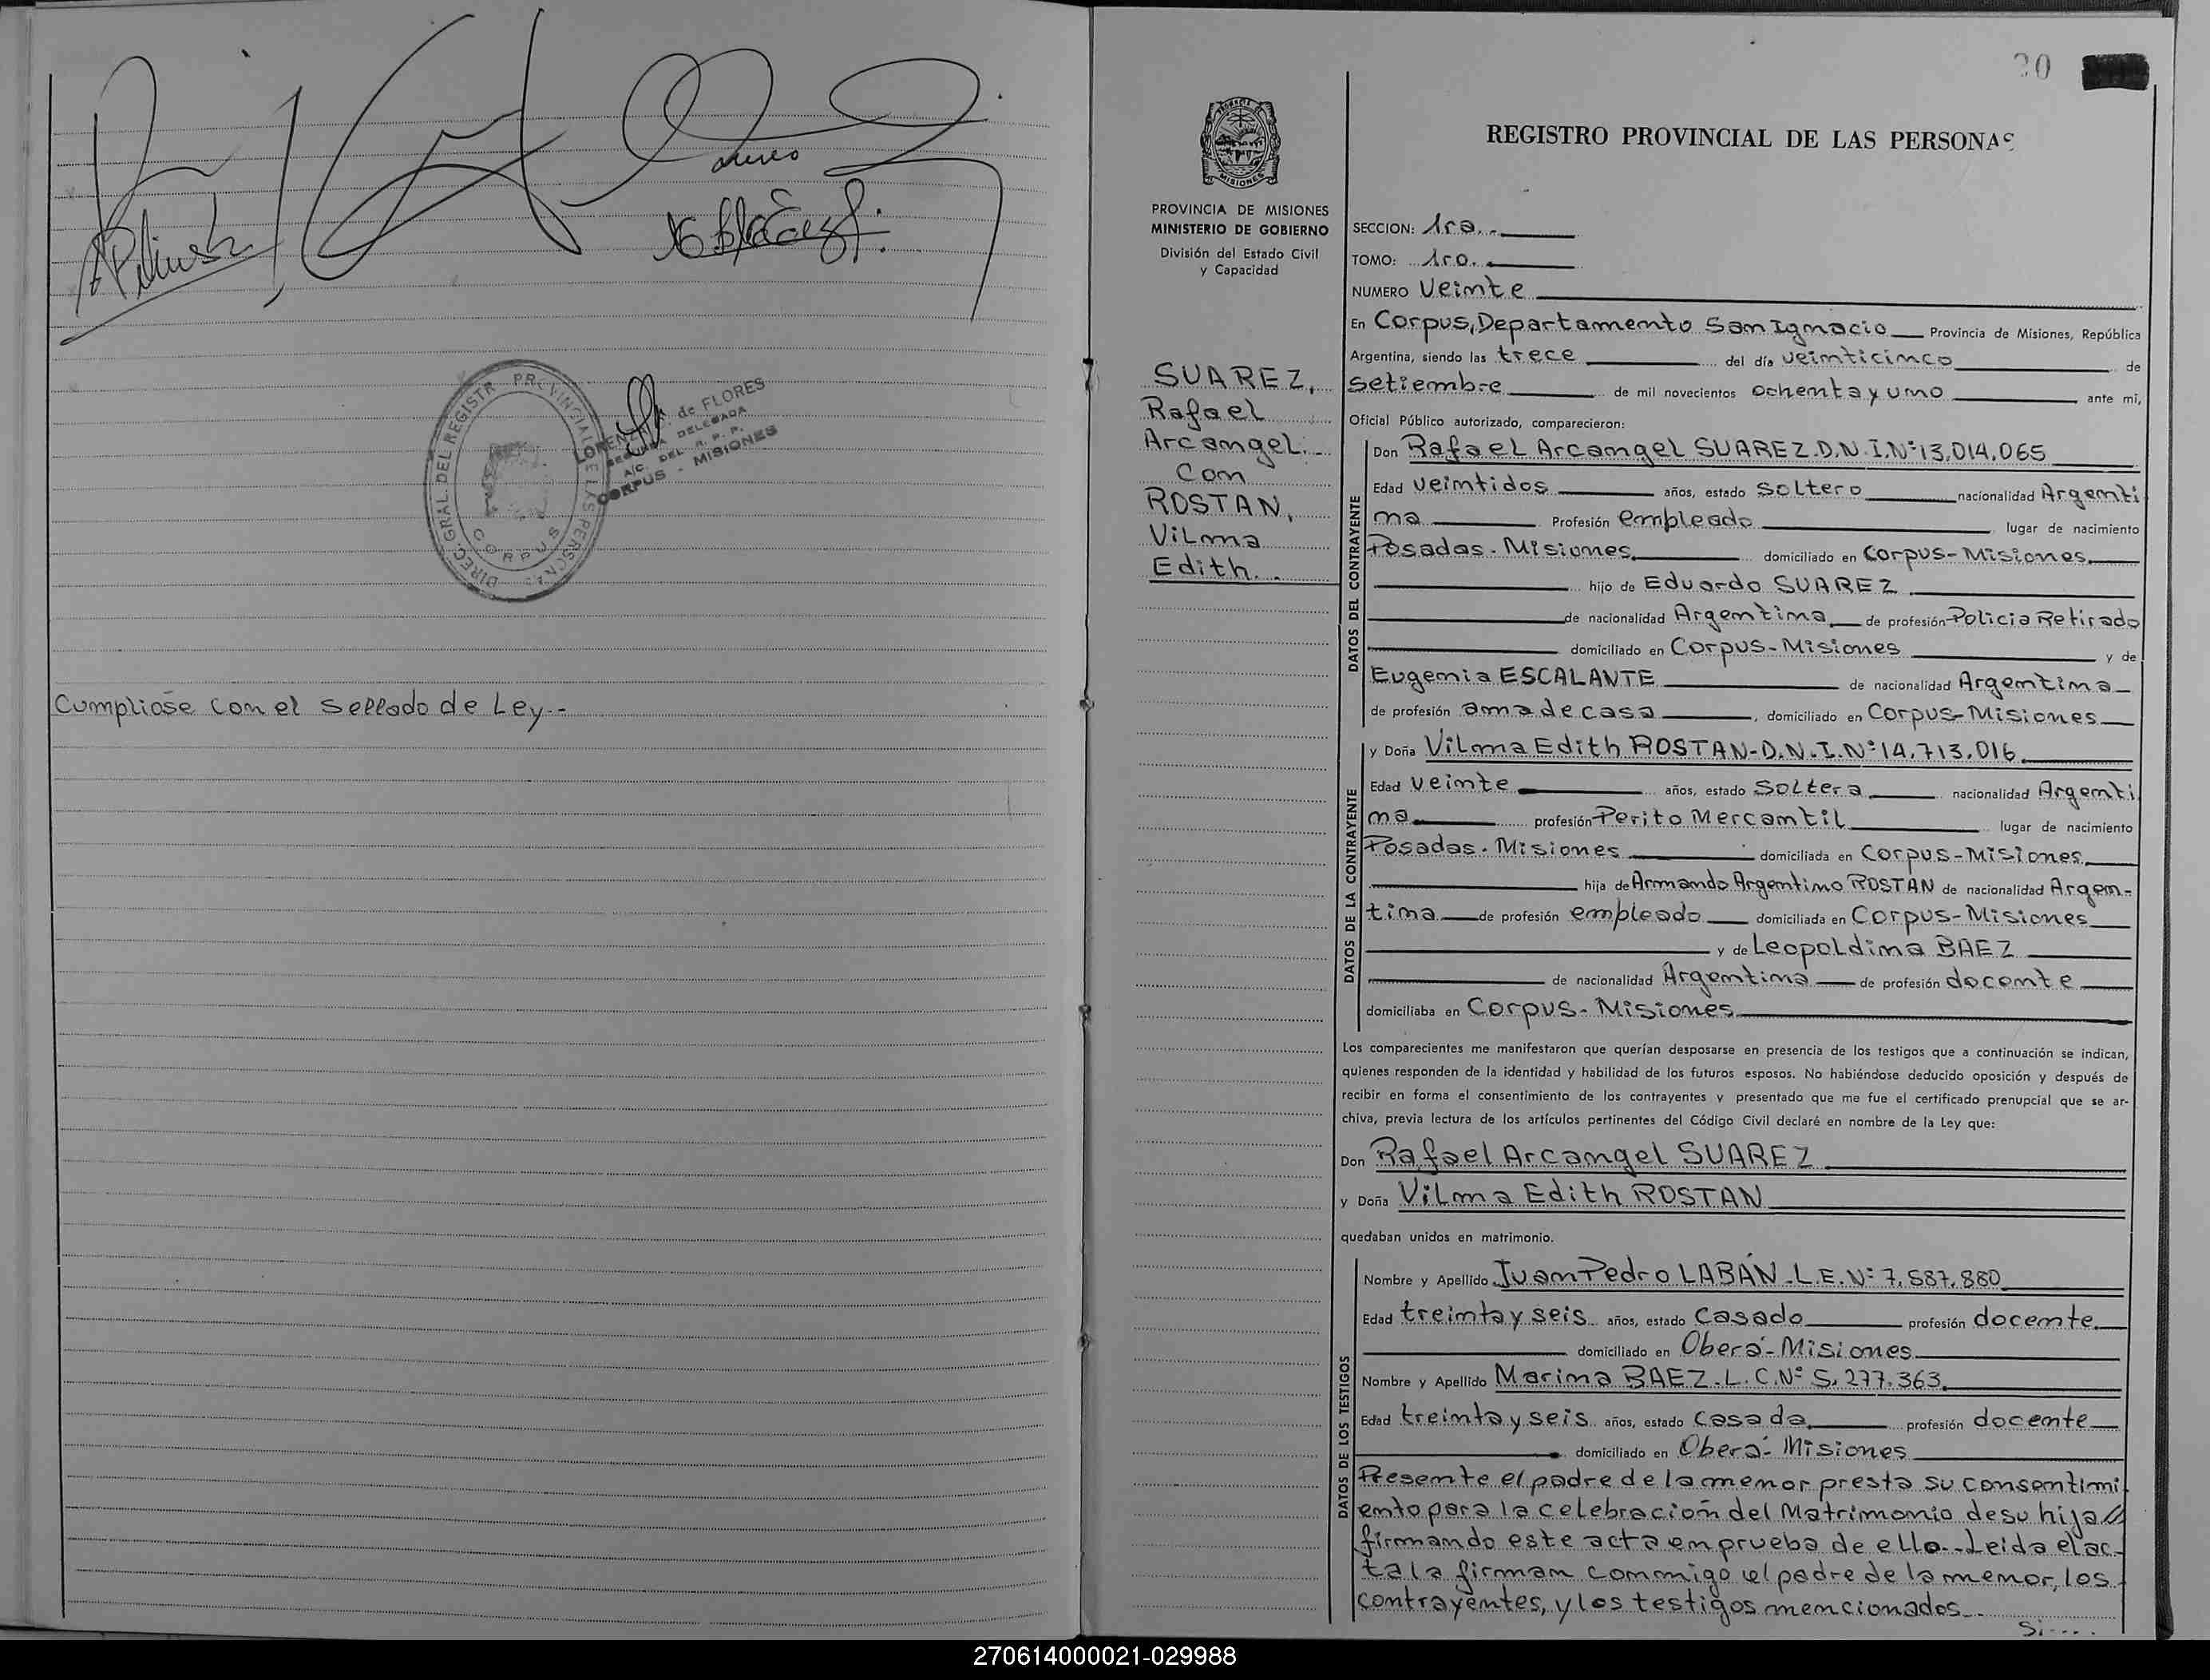 Cumplióse con el sellado de Ley.-
DIREC. GRAL. DEL REGISTR PROVINCIAL DE LAS PERSONAS
CORPUS
de FLORES
DELEGADA
A/C DEL R. P. P.
CORPUS - MISIONES
20
PROVINCIA DE MISIONES
MINISTERIO DE GOBIERNO
División del Estado Civil
y Capacidad
SUAREZ,
Rafael
Arcangel.
Con
ROSTAN,
Vilma
Edith..
REGISTRO PROVINCIAL DE LAS PERSONAS
SECCION: 1ra.
TOMO: 1ro.
NUMERO Veinte
En Corpus, Departamento San Ignacio Provincia de Misiones, República
Argentina, siendo las trece del día veinticinco de
setiembre de mil novecientos ochenta y uno ante mi,
Oficial Público autorizado, comparecieron:
DATOS DEL CONTRAYENTE
Don Rafael Arcangel SUAREZ.D.N.I.Nº13.014.065
Edad veintidos años, estado soltero nacionalidad Argenti
na Profesión empleado lugar de nacimiento
Posadas. Misiones domiciliado en Corpus-Misiones
hijo de Eduardo SUAREZ
de nacionalidad Argentina de profesión Policia Retirado
domiciliado en Corpus-Misiones y de
Eugenia ESCALANTE de nacionalidad Argentina
de profesión ama de casa, domiciliado en Corpus-Misiones
DATOS DE LA CONTRAYENTE
y Doña Vilma Edith ROSTAN-D.N.I.Nº14.713.016
Edad veinte años, estado soltera nacionalidad Argenti
na profesión Perito Mercantil lugar de nacimiento
Posadas. Misiones domiciliada en Corpus-Misiones
hija de Armando Argentino ROSTAN de nacionalidad Argen-
tina de profesión empleado domiciliada en Corpus-Misiones
y de Leopoldina BAEZ
de nacionalidad Argentina de profesión docente
domiciliaba en Corpus-Misiones
Los comparecientes me manifestaron que querían desposarse en presencia de los testigos que a continuación se indican,
quienes responden de la identidad y habilidad de los futuros esposos. No habiéndose deducido oposición y después de
recibir en forma el consentimiento de los contrayentes y presentado que me fue el certificado prenupcial que se ar-
chiva, previa lectura de los artículos pertinentes del Código Civil declaré en nombre de la Ley que:
Don Rafael Arcangel SUAREZ
y Doña Vilma Edith ROSTAN
quedaban unidos en matrimonio.
DATOS DE LOS TESTIGOS
Nombre y Apellido Juan Pedro LABAN.L.E.Nº 7.587.880
Edad treinta y seis años, estado casado profesión docente
domiciliado en Oberá-Misiones
Nombre y Apellido Marina BAEZ.L.C.Nº 5.277.363
Edad treinta y seis años, estado casada profesión docente
domiciliado en Oberá-Misiones
Presente el padre de la menor presta su consentimi
ento para la celebración del Matrimonio de su hija //
firmando este acta en prueba de ello.-Leida el ac-
ta la firman conmigo el padre de la menor, los
contrayentes, y los testigos mencionados..
Si....
270614000021-029988